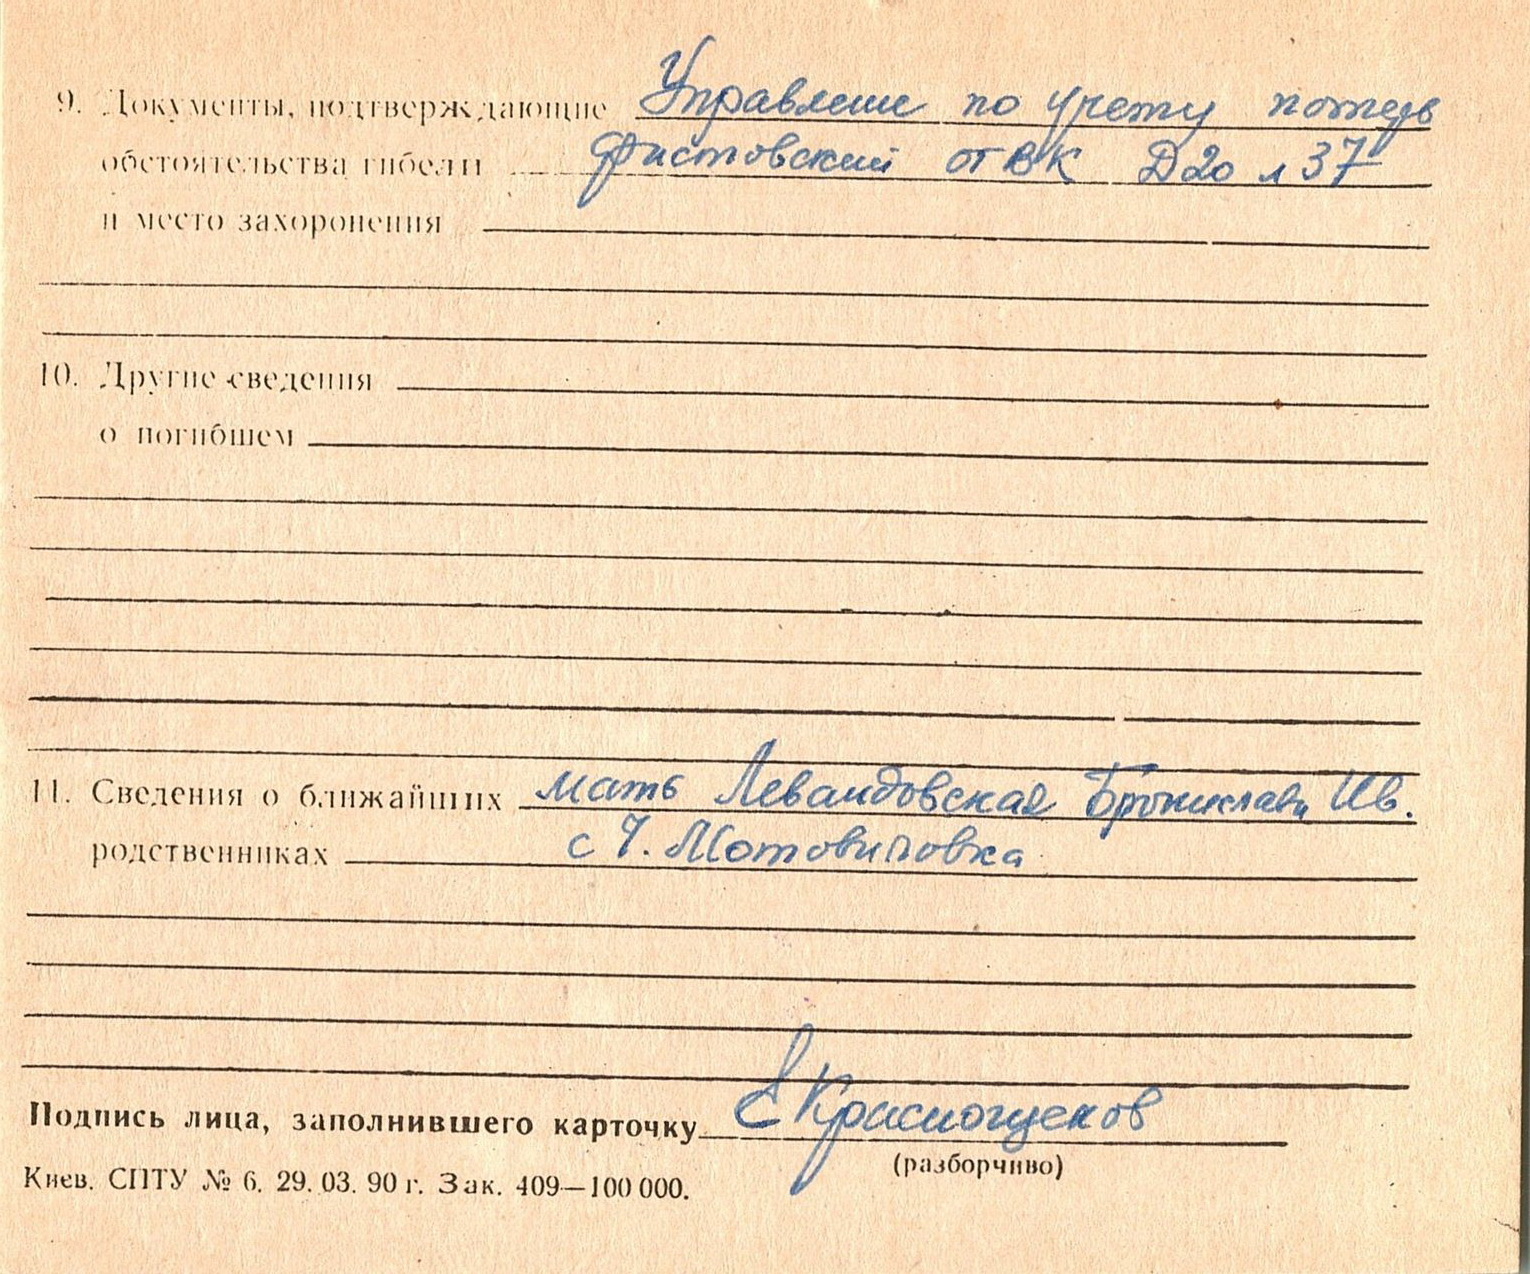 9. Документы, подтверждающие Управление по учету потерь
обстоятельства гибели Фастовский ОГВК Д20 л 37
и место захоронения
10. Другие сведения
о погибшем
11. Сведения о ближайших мать Левандовская Бронислава Ив.
родственниках с Ч. Мотовиловка
Подпись лица, заполнившего карточку Е Краснощеков
(разборчиво)
Киев. СПТУ № 6. 29. 03. 90 г. Зак. 409—100 000.